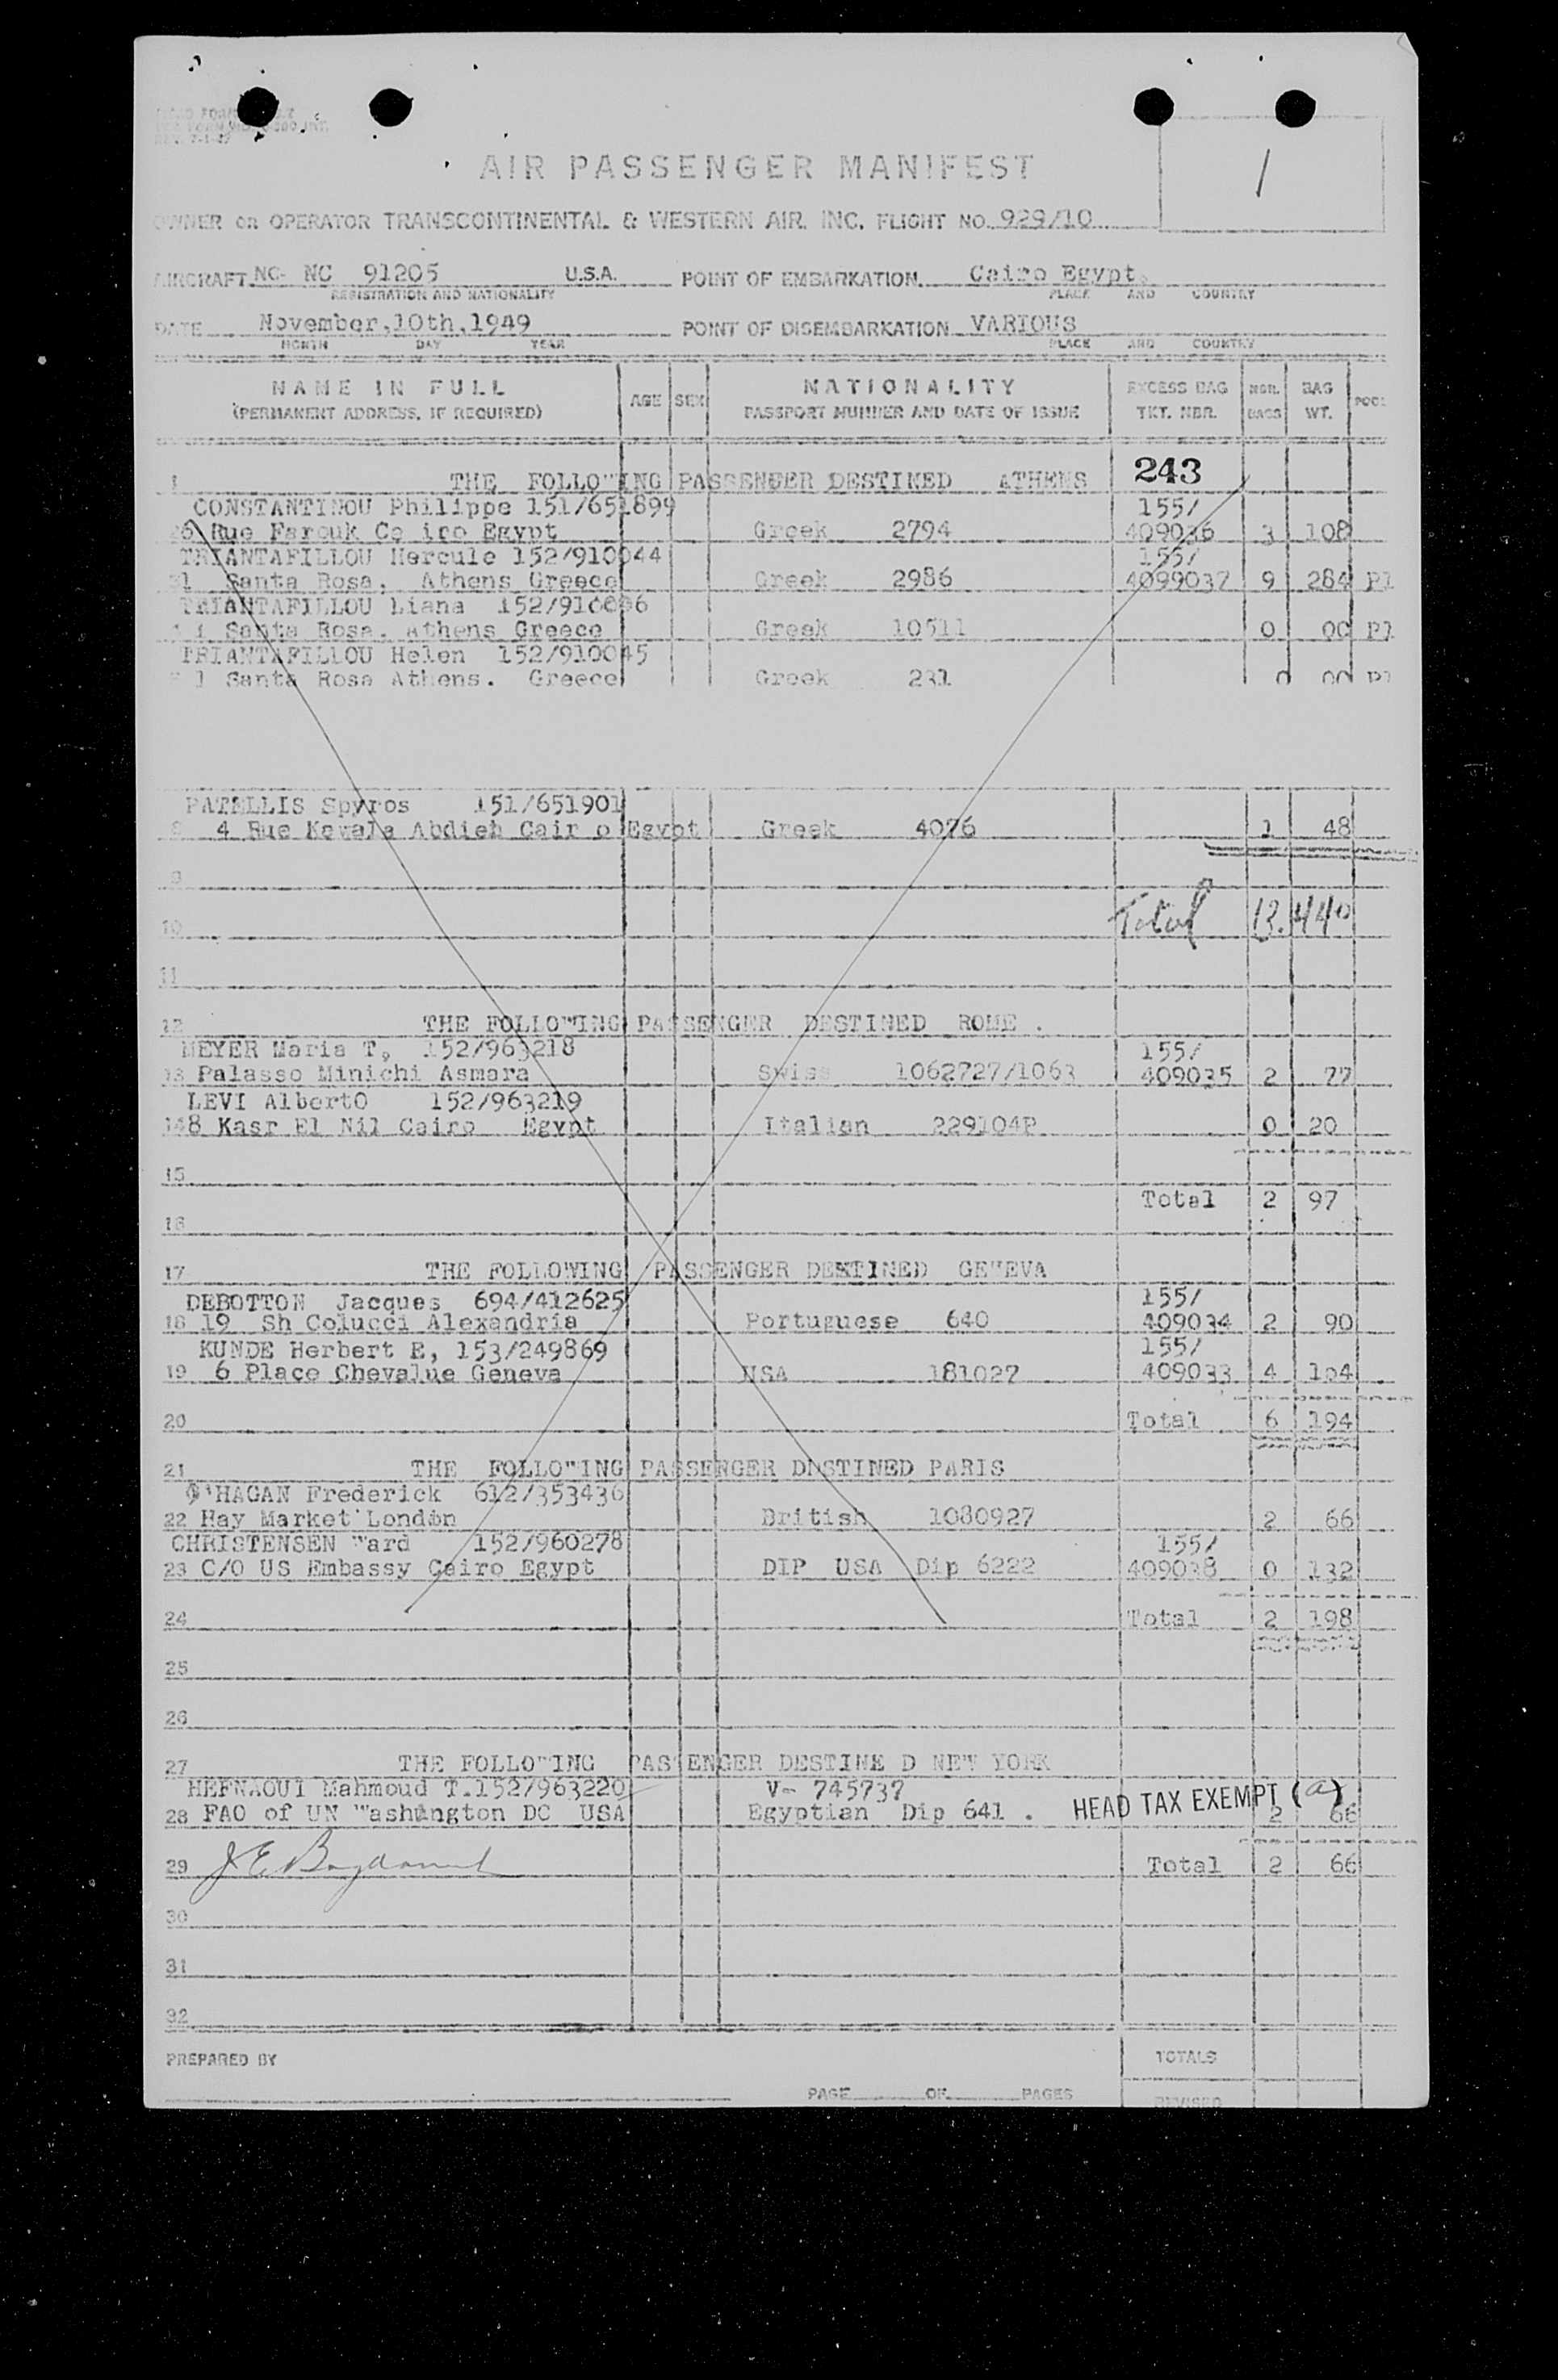 AIR PASSENGER MANIFEST
1
OWNER OR OPERATOR TRANSCONTINENTAL & WESTERN AIR, INC. FLIGHT NO. 929/10
AIRCRAFT NC- NC 91205 U.S.A. POINT OF EMBARKATION Cairo Egypt.
REGISTRATION AND NATIONALITY PLACE AND COUNTRY
DATE November,10th,1949 POINT OF DISEMBARKATION VARIOUS
MONTH DAY YEAR PLACE AND COUNTRY
NAME IN FULL AGE SEX NATIONALITY EXCESS BAG NBR. BAG
(PERMANENT ADDRESS, IF REQUIRED) PASSPORT NUMBER AND DATE OF ISSUE TKT. NBR. BAGS WT.
1 THE FOLLOWING PASSENGER DESTINED ATHENS 243
CONSTANTINOU Philippe 151/651899 155/
26 Rue Farouk Ca iro Egypt Greek 2794 409036 3 108
TRIANTAFILLOU Hercule 152/910044 155/
1 Santa Rosa, Athens Greece Greek 2986 4099037 9 284 Pl
TRIANTAFILLOU Liana 152/910046
1 Santa Rosa. Athens Greece Greek 10511 0 00 Pl
TRIANTAFILLOU Helen 152/910045
1 Santa Rosa Athens. Greece Greek 231 0 00 Pl
PATELLIS Spyros 151/651901
8 4 Rue Kavala Abdieh Cair o Egypt Greek 4076 1 48
9
10 Total 13. 440
11
12 THE FOLLOWING PASSENGER DESTINED ROME .
MEYER Maria T, 152/963218 155/
13 Palasso Minichi Asmara Swiss 1062727/1063 409035 2 77
LEVI AlbertO 152/963219
14 8 Kasr El Nil Cairo Egypt Italian 229104P 0 20
15
Total 2 97
16
17 THE FOLLOWING PASSENGER DESTINED GENEVA
DEBOTTON Jacques 694/412625 155/
18 19 Sh Colucci Alexandria Portuguese 640 409034 2 90
KUNDE Herbert E, 153/249869 155/
19 6 Place Chevalue Geneva USA 181027 409033 4 104
20 Total 6 194
21 THE FOLLOWING PASSENGER DESTINED PARIS
O'HAGAN Frederick 612/353436
22 Hay Market London British 1080927 2 66
CHRISTENSEN Ward 152/960278 155/
23 C/O US Embassy Cairo Egypt DIP USA Dip 6222 409038 0 132
24 Total 2 198
25
26
27 THE FOLLOWING PASSENGER DESTINE D NEW YORK
HEFNAOUI Mahmoud T.152/963220 V- 745737
28 FAO of UN Washington DC USA Egyptian Dip 641 . HEAD TAX EXEMPT (a) 2 66
29 Total 2 66
30
31
32
PREPARED BY TOTALS
PAGE OF PAGES
REVISED